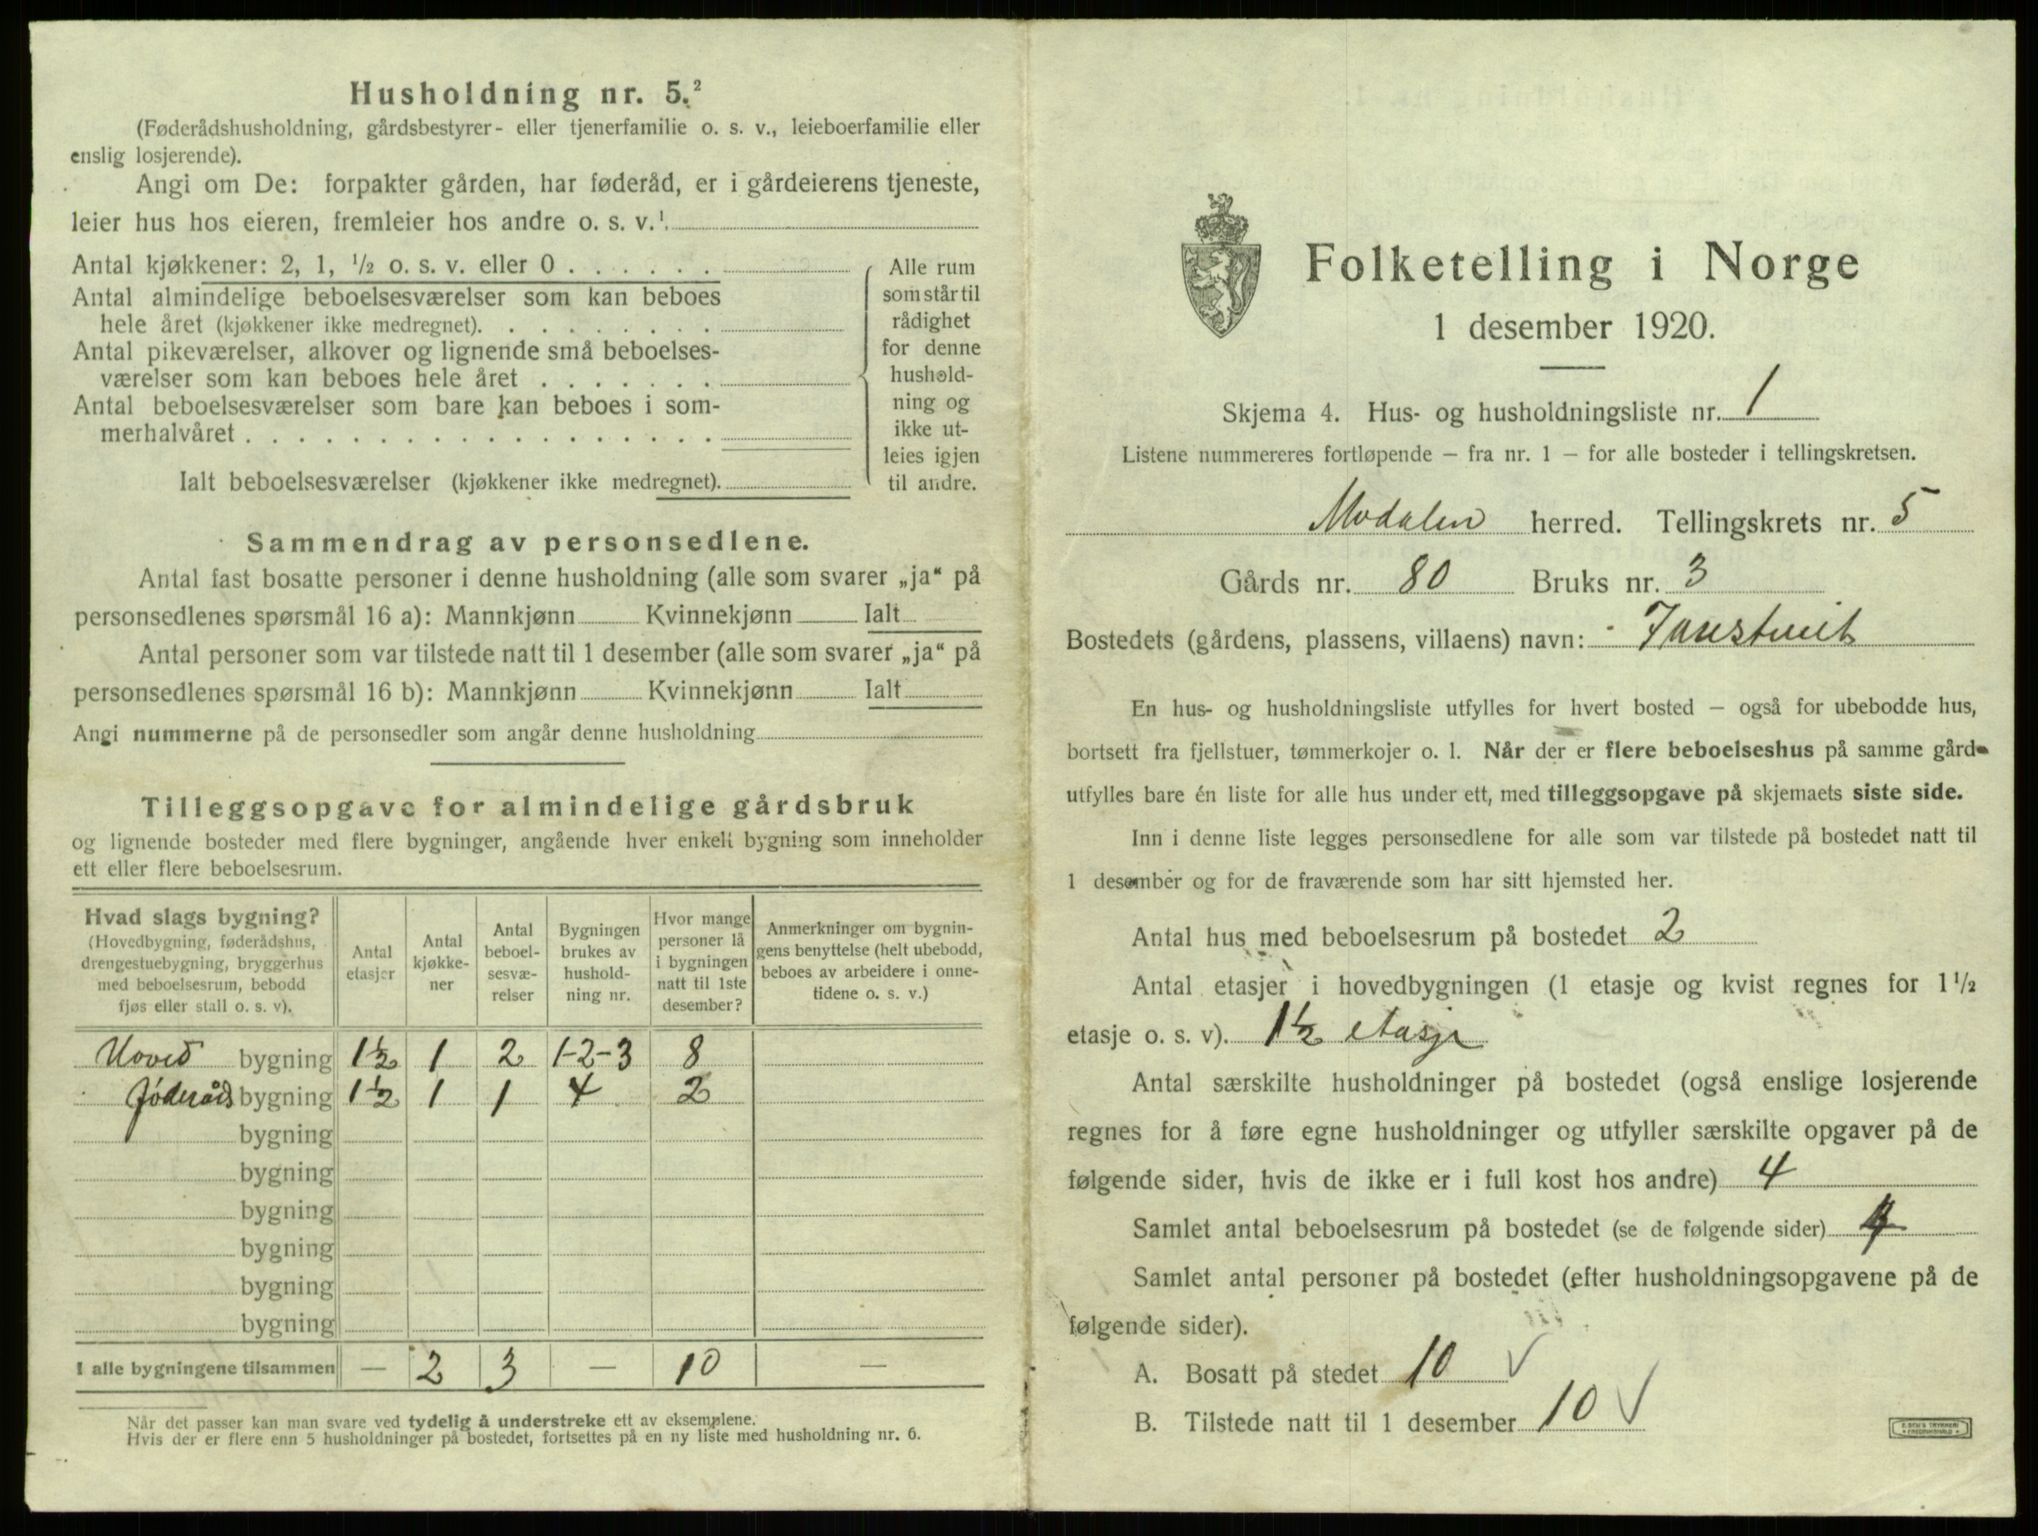 Husholdning nr. 5.²
(Føderådshusholdning, gårdsbestyrer- eller tjenerfamilie o. s. v., leieboerfamilie eller
enslig losjerende).
Angi om De: forpakter gården, har føderåd, er i gårdeierens tjeneste,
leier hus hos eieren, fremleier hos andre o. s. v.¹
Antal kjøkkener: 2, 1, ½ o. s. v. eller 0 . . . . . .
Antal almindelige beboelsesværelser som kan beboes
hele året (kjøkkener ikke medregnet). . . . . . . . .
Antal pikeværelser, alkover og lignende små beboelses-
værelser som kan beboes hele året . . . . . . .
Antal beboelsesværelser som bare kan beboes i som-
merhalvåret . . . . . . . . . . . . . . . . . .
Ialt beboelsesværelser (kjøkkener ikke medregnet).
Alle rum
som står til
rådighet
for denne
hushold-
ning og
ikke ut-
leies igjen
til andre.
Sammendrag av personsedlene.
Antal fast bosatte personer i denne husholdning (alle som svarer „ja“ på
personsedlenes spørsmål 16 a): Mannkjønn Kvinnekjønn Ialt
Antal personer som var tilstede natt til 1 desember (alle som svarer „ja“ på
personsedlenes spørsmål 16 b): Mannkjønn Kvinnekjønn Ialt
Angi nummerne på de personsedler som angår denne husholdning
Tilleggsopgave for almindelige gårdsbruk
og lignende bosteder med flere bygninger, angående hver enkelt bygning som inneholder
ett eller flere beboelsesrum.
Hvad slags bygning?
(Hovedbygning, føderådshus,
drengestuebygning, bryggerhus
med beboelsesrum, bebodd
fjøs eller stall o. s. v).
Antal
etasjer
Antal
kjøkke-
ner
Antal
beboel-
sesvæ-
relser
Bygningen
brukes av
hushold-
ning nr.
Hvor mange
personer lå
i bygningen
natt til 1ste
desember?
Anmerkninger om bygnin-
gens benyttelse (helt ubebodd,
beboes av arbeidere i onne-
tidene o. s. v.)
Hoved bygning 1½ 1 2 1-2-3 8
Føderåds bygning 1½ 1 1 4 2
bygning
bygning
bygning
bygning
bygning
bygning
I alle bygningene tilsammen — 2 3 — 10 —
Når det passer kan man svare ved tydelig å understreke ett av eksemplene.
Hvis der er flere enn 5 husholdninger på bostedet, fortsettes på en ny liste med husholdning nr. 6.
Folketelling i Norge
1 desember 1920.
Skjema 4. Hus- og husholdningsliste nr. 1
Listene nummereres fortløpende – fra nr. 1 – for alle bosteder i tellingskretsen.
Modalen herred. Tellingskrets nr. 5
Gårds nr. 80 Bruks nr. 3
Bostedets (gårdens, plassens, villaens) navn:
En hus- og husholdningsliste utfylles for hvert bosted – også for ubebodde hus,
bortsett fra fjellstuer, tømmerkojer o. l. Når der er flere beboelseshus på samme gård
utfylles bare én liste for alle hus under ett, med tilleggsopgave på skjemaets siste side.
Inn i denne liste legges personsedlene for alle som var tilstede på bostedet natt til
1 desember og for de fraværende som har sitt hjemsted her.
Antal hus med beboelsesrum på bostedet 2
Antal etasjer i hovedbygningen (1 etasje og kvist regnes for 1½
etasje o. s. v). 1½ etasje
Antal særskilte husholdninger på bostedet (også enslige losjerende
regnes for å føre egne husholdninger og utfyller særskilte opgaver på de
følgende sider, hvis de ikke er i full kost hos andre) 4
Samlet antal beboelsesrum på bostedet (se de følgende sider)
Samlet antal personer på bostedet (efter husholdningsopgavene på de
følgende sider).
A. Bosatt på stedet 10 ✓
B. Tilstede natt til 1 desember 10 ✓